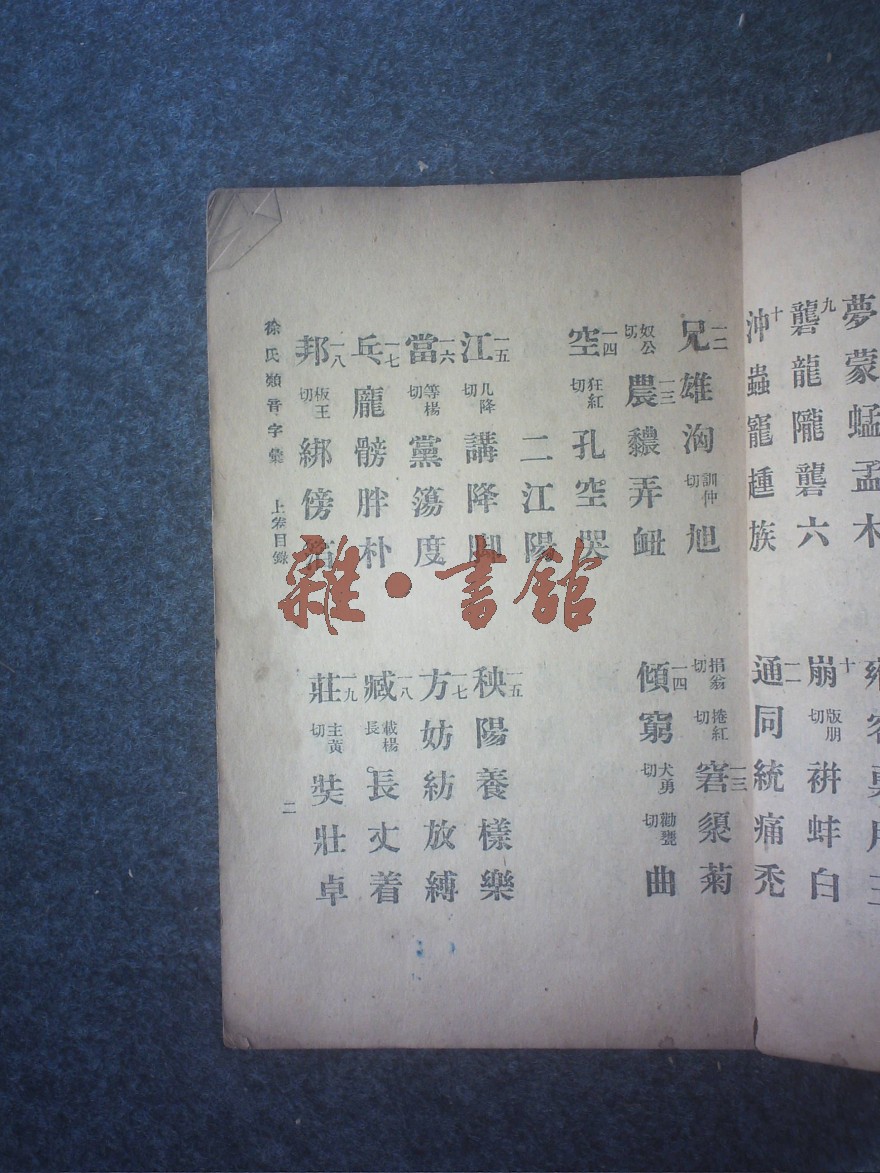 夢蒙蜢孟木
九 礱龍隴礱六
十 沖蟲寵踵族
十 崩 版朋切 蚌白
一二 通同統痛禿
一二 兄雄洶 訓仲切 旭
奴公切 一三 農弄
捐翁切 捲紅切 一三 窘菊
一四 空 狂紅切 孔空哭
一四 傾窮 犬勇切 勸甕切 曲
二江陽
一五 江 几降切 講降脚
一五 秧陽養樣樂
一六 當 等楊切 黨蕩度
一七 方妨紡放縛
一七 乓龐髈胖朴
一八 臧 載楊 長長丈着
一八 邦 板王切 綁傍
一九 莊 主黃切 奘壯卓
徐氏類音字彙 上卷目錄
二
雜·書館